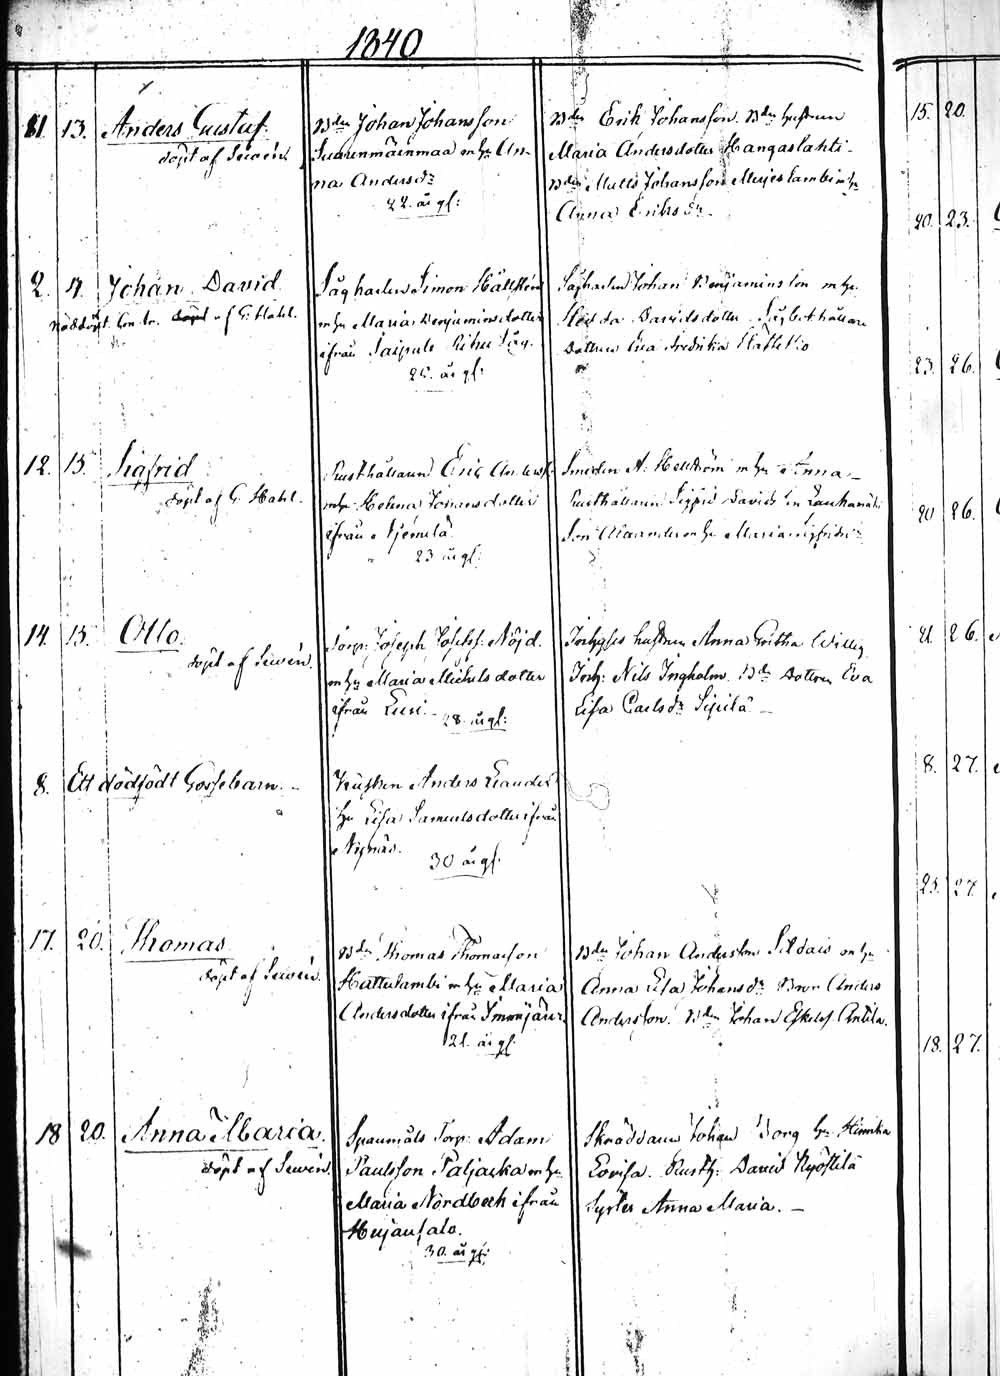 1840
11. 13. Anders Gustaf.
döpt af Siwén.
Bdn Johan Johansson
Suurenmäinmaa m hu An-
na Andersdr
22. år gl:
Bdn Erik Johansson. Bdn hustrun
Maria Andersdotter Kangaslahti -
Bdn Matts Johansson Merjeslambi m hu
Anna Eriksdr.
2. 4. Johan David.
nöddöpt af G. Hahl.
Sågkarlen Simon Källström
m hu Maria Benjaminsdotter
ifrån Saipale Såg.
25. år gl:
Sågkarlen Johan Benjaminsson m hu
Davidsdotter.
Dottren Eva Fredrika
12. 15. Sigfrid
döpt af G. Hahl.
Rusthållaren Eric Andersf:
m hu Helena Johansdotter
ifrån Njemelä.
23 år gl:
Smeden A. Hellström m hu Anna -
Rusthållaren Sigfrid Davidsson
Son Alexander m hu Maria Sigfridsdr
14. 15. Otto.
döpt af Siwén.
Torp: Joseph Josefsf: Nöjd.
m hu Maria Michelsdotter
ifrån Lusi. -
28. år gl:
hustrun Anna Greta Willig
Torp: Nils Ingholm. Bdn Dottren Eva
Lisa Carlsdr Sipilä -
8. Ett dödfödt Gossebarn. -
Anders Leander
hu Lisa Samuelsdotter ifrån
Nipnäs.
30 år gl:
17. 20. Thomas.
döpt af Siwén.
Bdn Thomas Thomasson
Hattulambi m hu Maria
Andersdotter ifrån Immjärvi
21. år gl:
Bdn Johan Andersson Sildais m hu
Anna Lisa Johansdr Bror Anders
Andersson. Bdn Johan Eskelsf Antila.
18 20. Anna Maria.
döpt af Siwén.
Spanmåls Torp: Adam
Paulsson Paljacka m hu
Maria Nordbeck ifrån
Heijansalo.
30. år gl:
Skräddaren Johan Borg hu Hinrika
Lovisa. Rusth: David Kyöstilä
Syster Anna Maria. -
15. 20.
20. 23.
23. 26.
20 26.
21. 26.
8. 27.
25. 27.
18. 27.